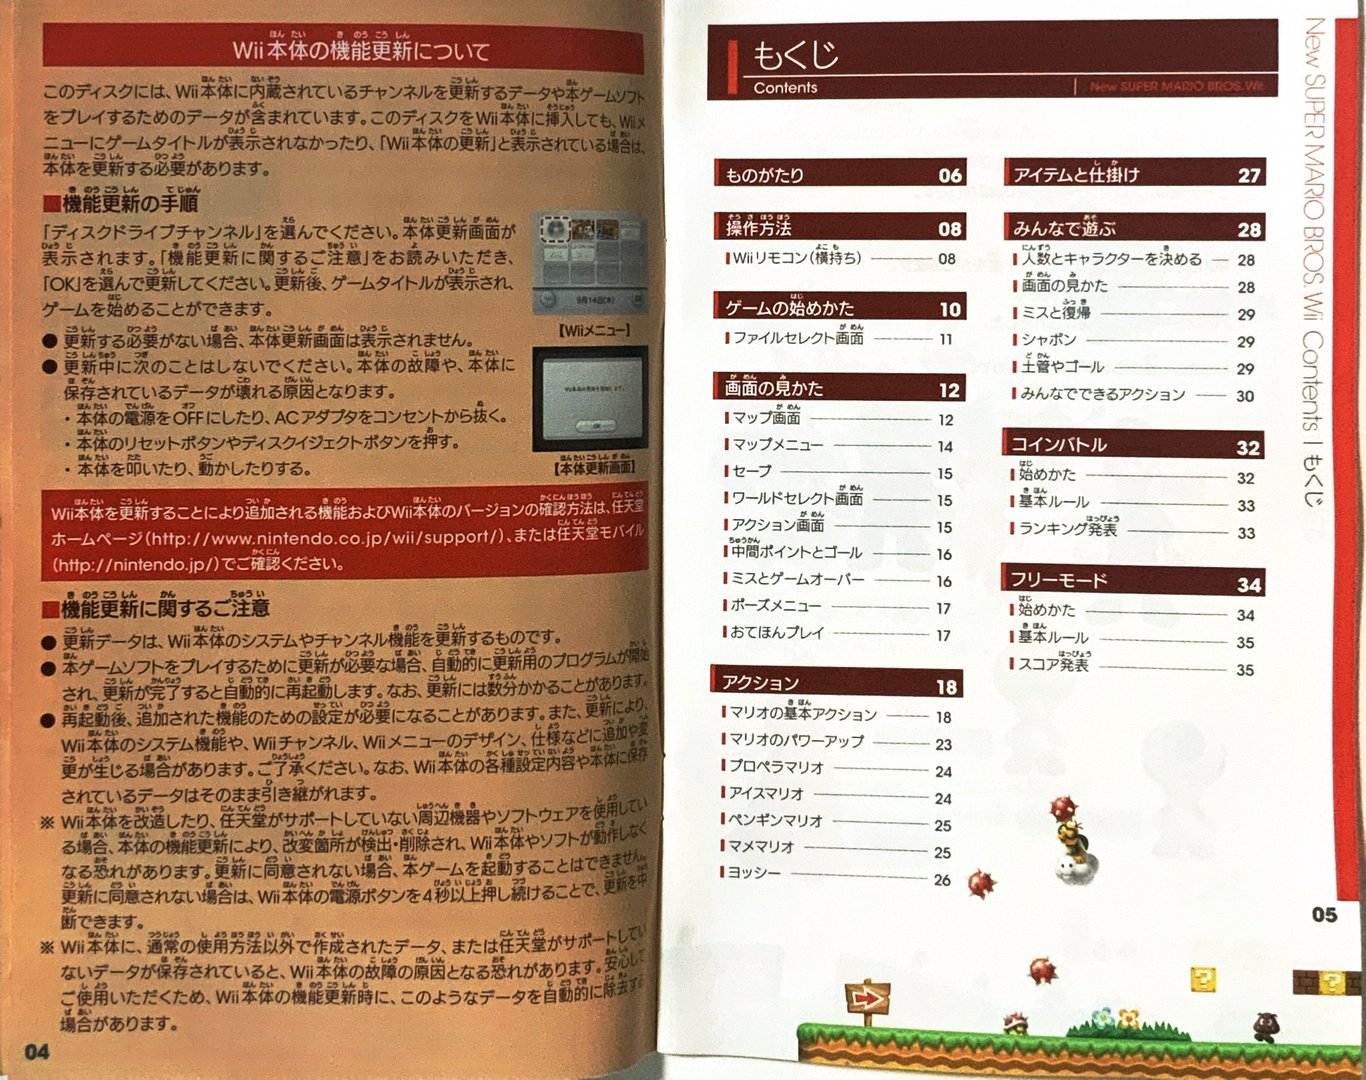 Wii本体の機能更新について
このディスクには、Wii本体に内蔵されているチャンネルを更新するデータや本ゲームソフト
をプレイするためのデータが含まれています。このディスクをWii本体に挿入しても、Wiiメ
ニューにゲームタイトルが表示されなかったり、「Wii本体の更新」と表示されている場合は、
本体を更新する必要があります。
■機能更新の手順
「ディスクドライブチャンネル」を選んでください。本体更新画面が
表示されます。「機能更新に関するご注意」をお読みいただき、
「OK」を選んで更新してください。更新後、ゲームタイトルが表示され、
ゲームを始めることができます。
9月14日(木)
【Wiiメニュー】
● 更新する必要がない場合、本体更新画面は表示されません。
● 更新中に次のことはしないでください。本体の故障や、本体に
保存されているデータが壊れる原因となります。
・本体の電源をOFFにしたり、ACアダプタをコンセントから抜く。
・本体のリセットボタンやディスクイジェクトボタンを押す。
・本体を叩いたり、動かしたりする。
OK
【本体更新画面】
Wii本体を更新することにより追加される機能およびWii本体のバージョンの確認方法は、任天堂
ホームページ(http://www.nintendo.co.jp/wii/support/)、または任天堂モバイル
(http://nintendo.jp/)でご確認ください。
■機能更新に関するご注意
● 更新データは、Wii本体のシステムやチャンネル機能を更新するものです。
● 本ゲームソフトをプレイするために更新が必要な場合、自動的に更新用のプログラムが開始
され、更新が完了すると自動的に再起動します。なお、更新には数分かかることがあります。
● 再起動後、追加された機能のための設定が必要になることがあります。また、更新により、
Wii本体のシステム機能や、Wiiチャンネル、Wiiメニューのデザイン、仕様などに追加や変
更が生じる場合があります。ご了承ください。なお、Wii本体の各種設定内容や本体に保存
されているデータはそのまま引き継がれます。
※ Wii本体を改造したり、任天堂がサポートしていない周辺機器やソフトウェアを使用してい
る場合、本体の機能更新により、改変箇所が検出・削除され、Wii本体やソフトが動作しなく
なる恐れがあります。更新に同意されない場合、本ゲームを起動することはできません。
更新に同意されない場合は、Wii本体の電源ボタンを4秒以上押し続けることで、更新を中
断できます。
※ Wii本体に、通常の使用方法以外で作成されたデータ、または任天堂がサポートしてい
ないデータが保存されていると、Wii本体の故障の原因となる恐れがあります。安心して
ご使用いただくため、Wii本体の機能更新時に、このようなデータを自動的に除去する
場合があります。
04
もくじ
Contents
New SUPER MARIO BROS. Wii
ものがたり 06
操作方法 08
Wiiリモコン(横持ち) 08
ゲームの始めかた 10
ファイルセレクト画面 11
画面の見かた 12
マップ画面 12
マップメニュー 14
セーブ 15
ワールドセレクト画面 15
アクション画面 15
中間ポイントとゴール 16
ミスとゲームオーバー 16
ポーズメニュー 17
おてほんプレイ 17
アクション 18
マリオの基本アクション 18
マリオのパワーアップ 23
プロペラマリオ 24
アイスマリオ 24
ペンギンマリオ 25
マメマリオ 25
ヨッシー 26
アイテムと仕掛け 27
みんなで遊ぶ 28
人数とキャラクターを決める 28
画面の見かた 28
ミスと復帰 29
シャボン 29
土管やゴール 29
みんなでできるアクション 30
コインバトル 32
始めかた 32
基本ルール 33
ランキング発表 33
フリーモード 34
始めかた 34
基本ルール 35
スコア発表 35
New SUPER MARIO BROS. Wii Contents | もくじ
05